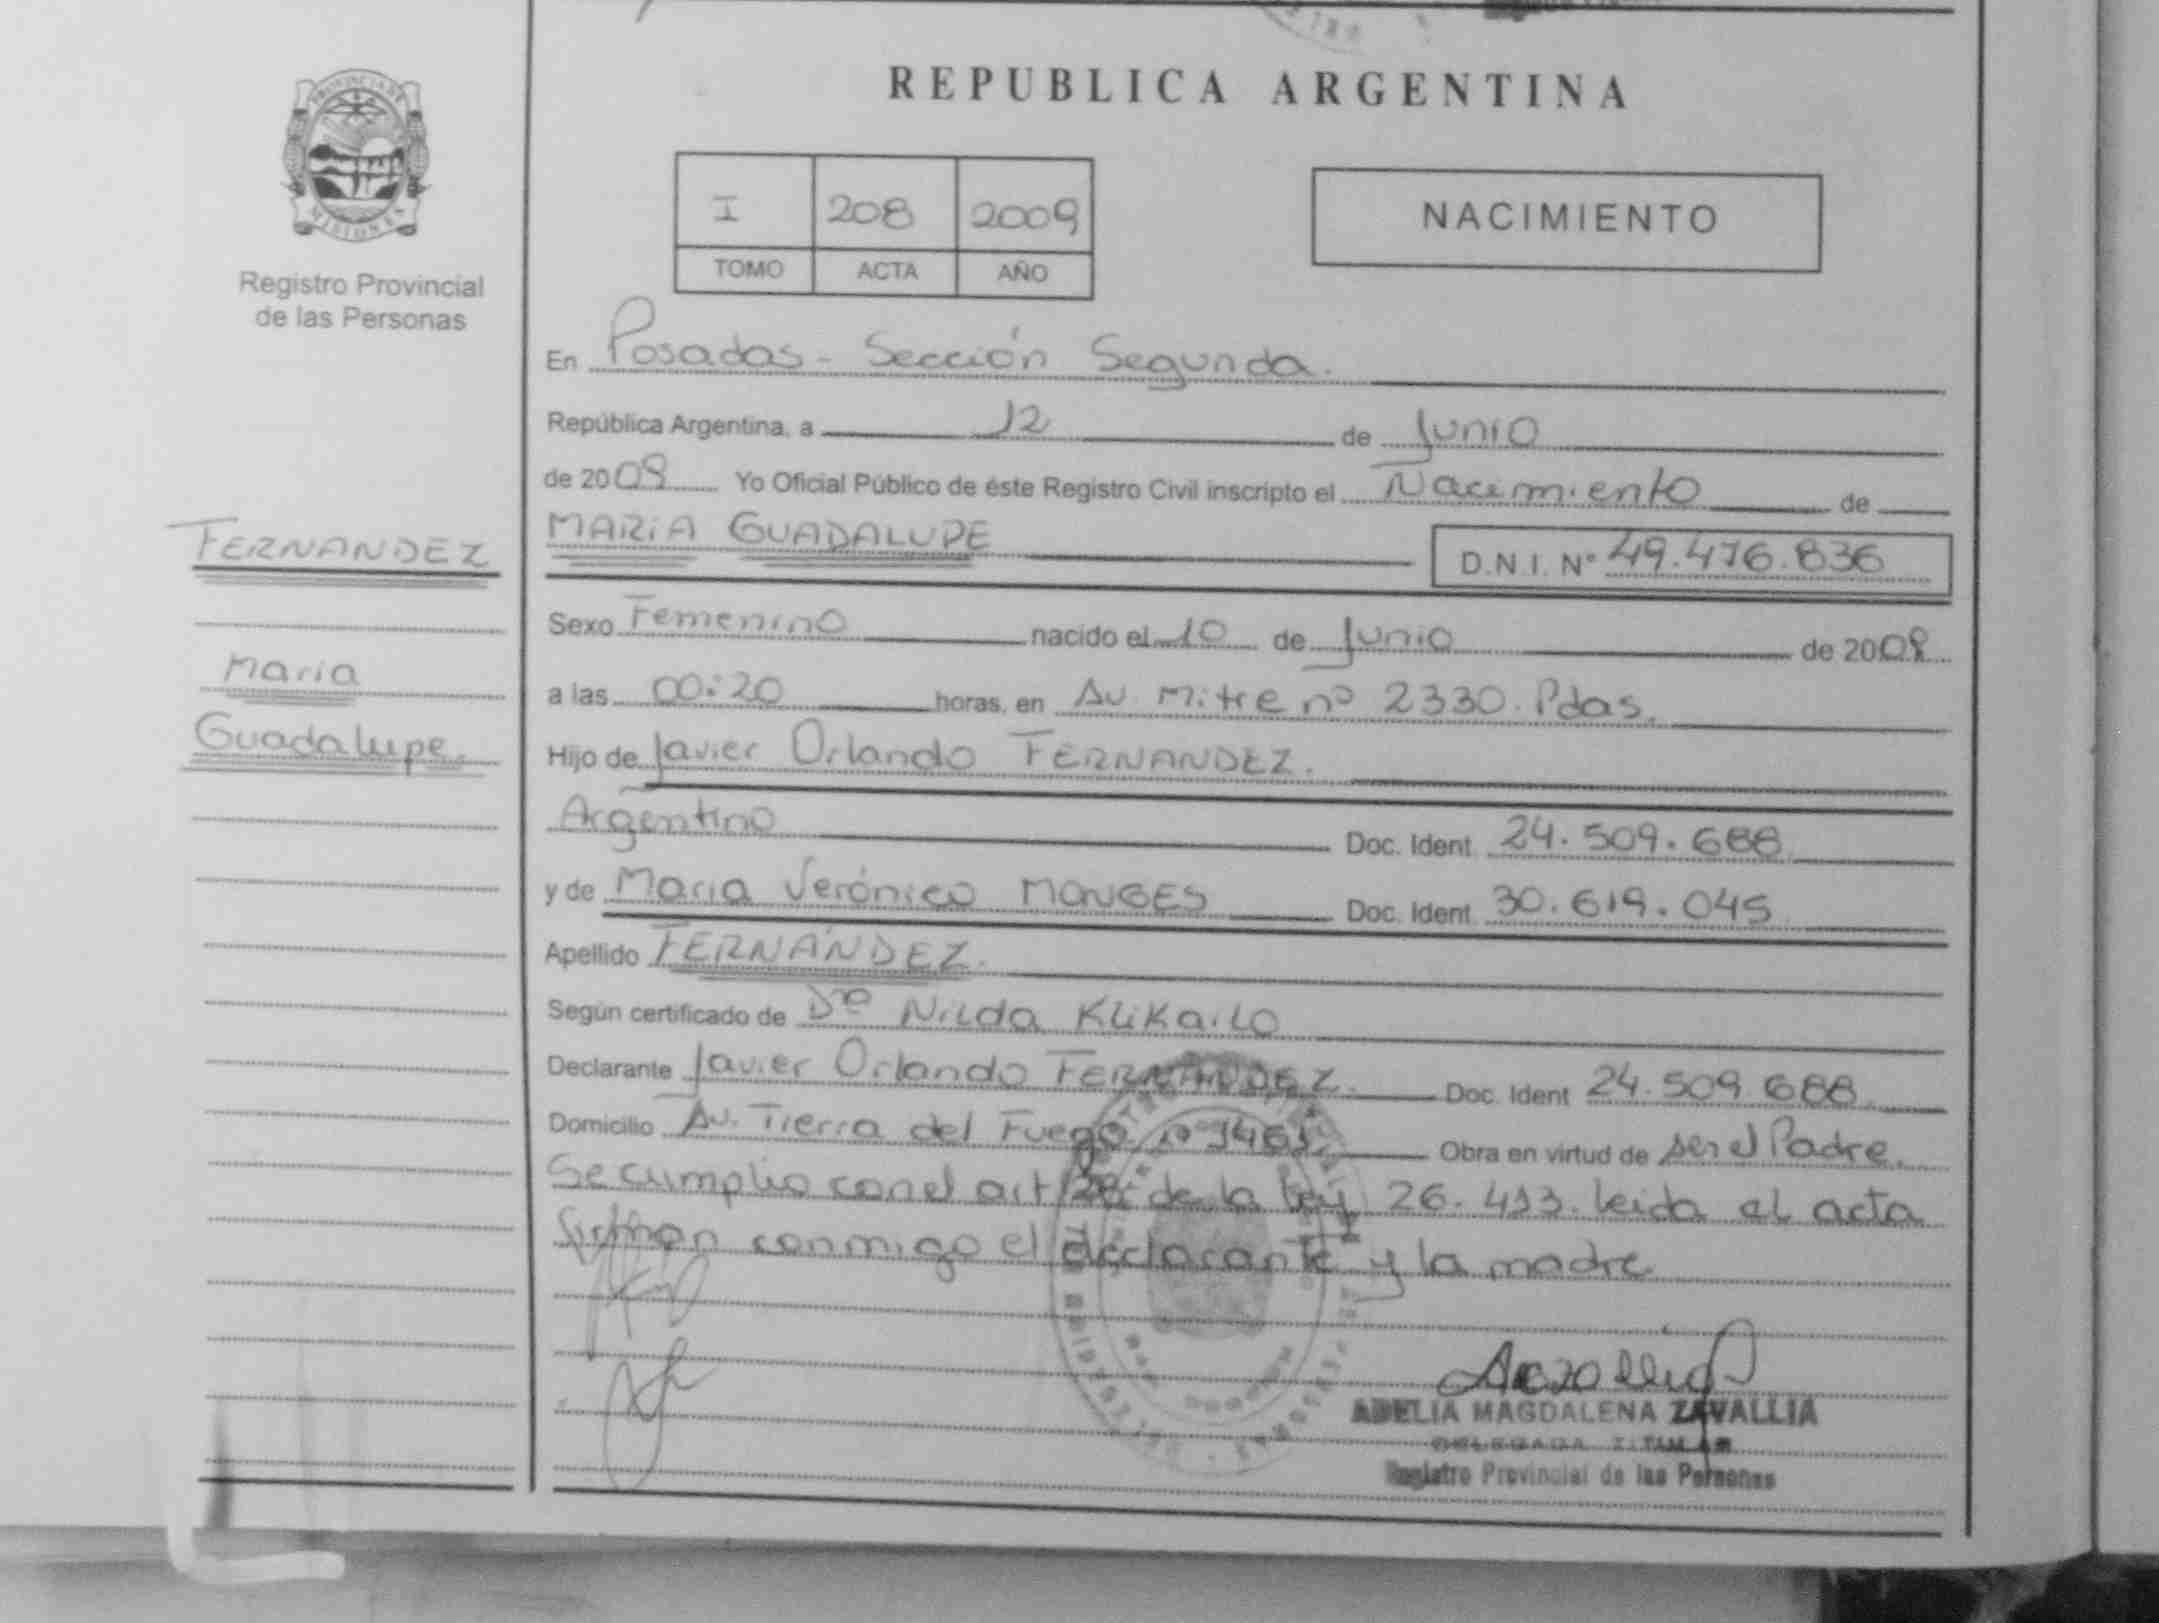 PROVINCIA DE
MISIONES
Registro Provincial
de las Personas
REPUBLICA ARGENTINA
I 208 2009
TOMO ACTA AÑO
NACIMIENTO
En Posadas - Sección Segunda.
República Argentina, a 12 de Junio
de 2009 Yo Oficial Público de éste Registro Civil inscripto el Nacimiento de
FERNANDEZ
MARIA GUADALUPE D.N.I. Nº 49.476.836
Sexo Femenino nacido el 10 de Junio de 2009
Maria
a las 00:20 horas, en Av. Mitre nº 2330. Pdas.
Guadalupe.
Hijo de Javier Orlando FERNANDEZ.
Argentino Doc. Ident. 24.509.688
y de Maria Verónica MONGES Doc. Ident. 30.619.045
Apellido FERNÁNDEZ.
Según certificado de Dra Nilda Klikailo
Declarante Javier Orlando FERNANDEZ. Doc. Ident 24.509.688
Domicilio Av. Tierra del Fuego nº Obra en virtud de ser el Padre.
Se cumplio con el art de la Ley 26.413. leida el acta
firman conmigo el declarante y la madre
ADELIA MAGDALENA ZAVALLIA
DELEGADA TITULAR
Registro Provincial de las Personas